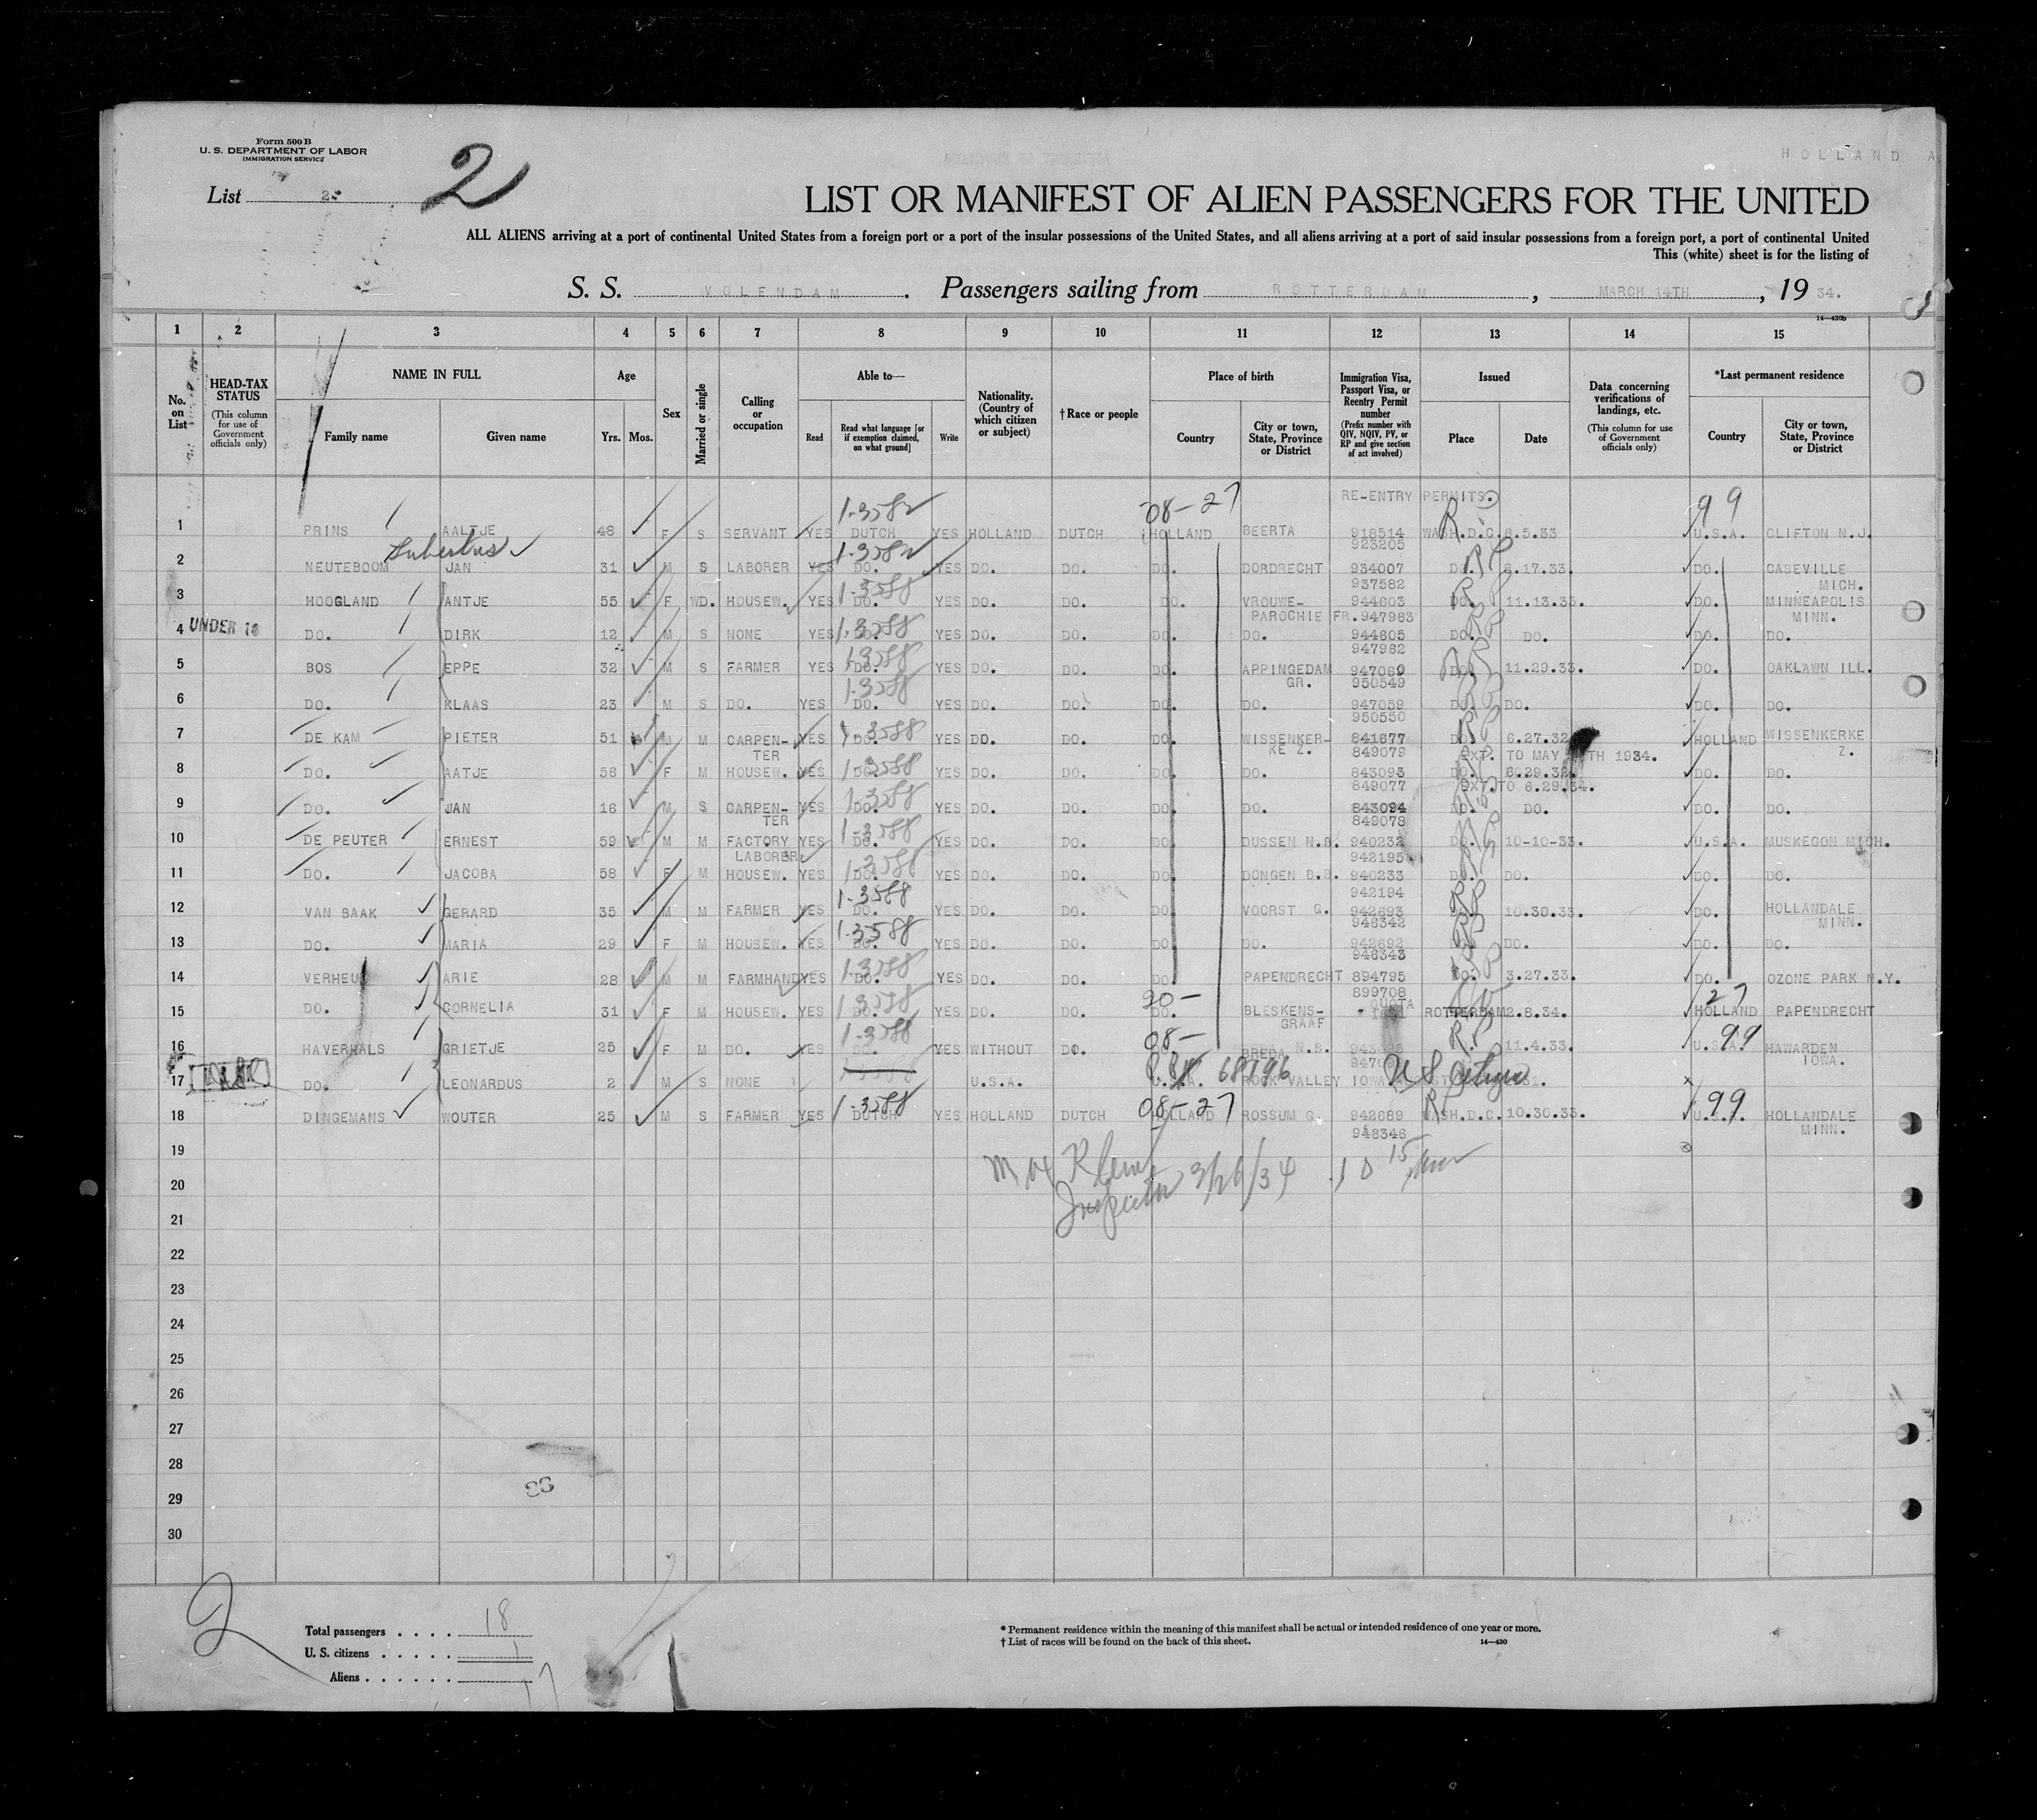 Form 500 B
U. S. DEPARTMENT OF LABOR
IMMIGRATION SERVICE
HOLLAND A
List 2
2
LIST OR MANIFEST OF ALIEN PASSENGERS FOR THE UNITED
ALL ALIENS arriving at a port of continental United States from a foreign port or a port of the insular possessions of the United States, and all aliens arriving at a port of said insular possessions from a foreign port, a port of continental United
This (white) sheet is for the listing of
S. S. VOLENDAM. Passengers sailing from ROTTERDAM, MARCH 14TH, 19 34.
14—430b
1 2 3 4 5 6 7 8 9 10 11 12 13 14 15
No. on List
HEAD-TAX STATUS (This column for use of Government officials only)
NAME IN FULL Family name Given name
Age Yrs. Mos.
Sex
Married or single
Calling or occupation
Able to— Read Read what language [or if exemption claimed, on what ground] Write
Nationality. (Country of which citizen or subject)
†Race or people
Place of birth Country City or town, State, Province or District
Immigration Visa, Passport Visa, or Reentry Permit number (Prefix number with QIV, NQIV, PV, or RP and give section of act involved)
Issued Place Date
Data concerning verifications of landings, etc. (This column for use of Government officials only)
*Last permanent residence Country City or town, State, Province or District
08-27 RE-ENTRY PERMITS. 99
1-3582
1 PRINS AALTJE 48 F S SERVANT YES DUTCH YES HOLLAND DUTCH HOLLAND BEERTA 918514 WASH.D.C. 8.5.33 U.S.A. CLIFTON N.J.
923205
Hubertus 1-3582
2 NEUTEBOOM JAN 31 M S LABORER YES DO. YES DO. DO. DO. DORDRECHT 934007 DO. 8.17.33. DO. CASEVILLE
1-3588 937582 MICH.
3 HOOGLAND ANTJE 55 F WD. HOUSEW. YES DO. YES DO. DO. DO. VROUWE- 944603 DO. 11.13.33. DO. MINNEAPOLIS
PAROCHIE FR. 947963 MINN.
4 UNDER 16 DO. DIRK 12 M S NONE YES 1-3588 DO. YES DO. DO. DO. DO. 944605 DO. DO. DO. DO.
947962
5 BOS EPPE 32 M S FARMER YES 1-3588 DO. YES DO. DO. DO. APPINGEDAM 947060 DO. 11.29.33. DO. OAKLAWN ILL.
GR. 950549
6 DO. KLAAS 23 M S DO. YES 1-3588 DO. YES DO. DO. DO. DO. 947059 DO. DO. DO. DO.
950550
7 DE KAM PIETER 51 M M CARPEN- YES 1-3588 DO. YES DO. DO. DO. WISSENKER- 841677 DO. 6.27.32 HOLLAND WISSENKERKE
TER KE Z. 849079 EXP. TO MAY TH 1934. Z.
8 DO. AATJE 56 F M HOUSEW. YES 1-3588 DO. YES DO. DO. DO. DO. 843093 DO. 6.29.32. DO. DO.
849077 EXT. TO 6.29.34.
9 DO. JAN 16 M S CARPEN- YES 1-3588 DO. YES DO. DO. DO. DO. 843094 DO. DO. DO. DO.
TER 849078
10 DE PEUTER ERNEST 59 M M FACTORY YES 1-3588 DO. YES DO. DO. DO. DUSSEN N.B. 940232 DO. 10-10-33. U.S.A. MUSKEGON MICH.
LABORER 942195
11 DO. JACOBA 58 F M HOUSEW. YES 1-3588 DO. YES DO. DO. DO. DONGEN B.B. 940233 DO. DO. DO. DO.
1-3588 942194
12 VAN BAAK GERARD 35 M M FARMER YES DO. YES DO. DO. DO. VOORST G. 942693 DO. 10.30.33. DO. HOLLANDALE
1-3588 946342 MINN.
13 DO. MARIA 29 F M HOUSEW. YES DO. YES DO. DO. DO. DO. 942692 DO. DO. DO. DO.
946343
14 VERHEUL ARIE 28 M M FARMHAND YES 1-3588 DO. YES DO. DO. DO. PAPENDRECHT 894795 DO. 3.27.33. DO. OZONE PARK N.Y.
20- 899708 27
15 DO. CORNELIA 31 F M HOUSEW. YES 1-3588 DO. YES DO. DO. DO. BLESKENS- QUOTA ROTTERDAM 2.8.34. HOLLAND PAPENDRECHT
GRAAF
1-3588 08- 99
16 HAVERHALS GRIETJE 25 F M DO. YES DO. YES WITHOUT DO. BREDA N.B. 11.4.33. U.S.A. HAWARDEN
IOWA.
17 DO. LEONARDUS 2 M S NONE U.S.A. U.S.A. 68196 ROCK VALLEY IOWA US Citizen
18 DINGEMANS WOUTER 25 M S FARMER YES 1-3588 DUTCH YES HOLLAND DUTCH 08-27 HOLLAND ROSSUM G. 942689 WASH.D.C. 10.30.33. 99 U.S.A. HOLLANDALE
946346 MINN.
19
20
Inspector 3/26/34 10 15
21
22
23
24
25
26
27
28
29
30
33
2
Total passengers . . . . 18
U. S. citizens . . . . . 1
Aliens . . . . . . 17
* Permanent residence within the meaning of this manifest shall be actual or intended residence of one year or more.
† List of races will be found on the back of this sheet. 14—430